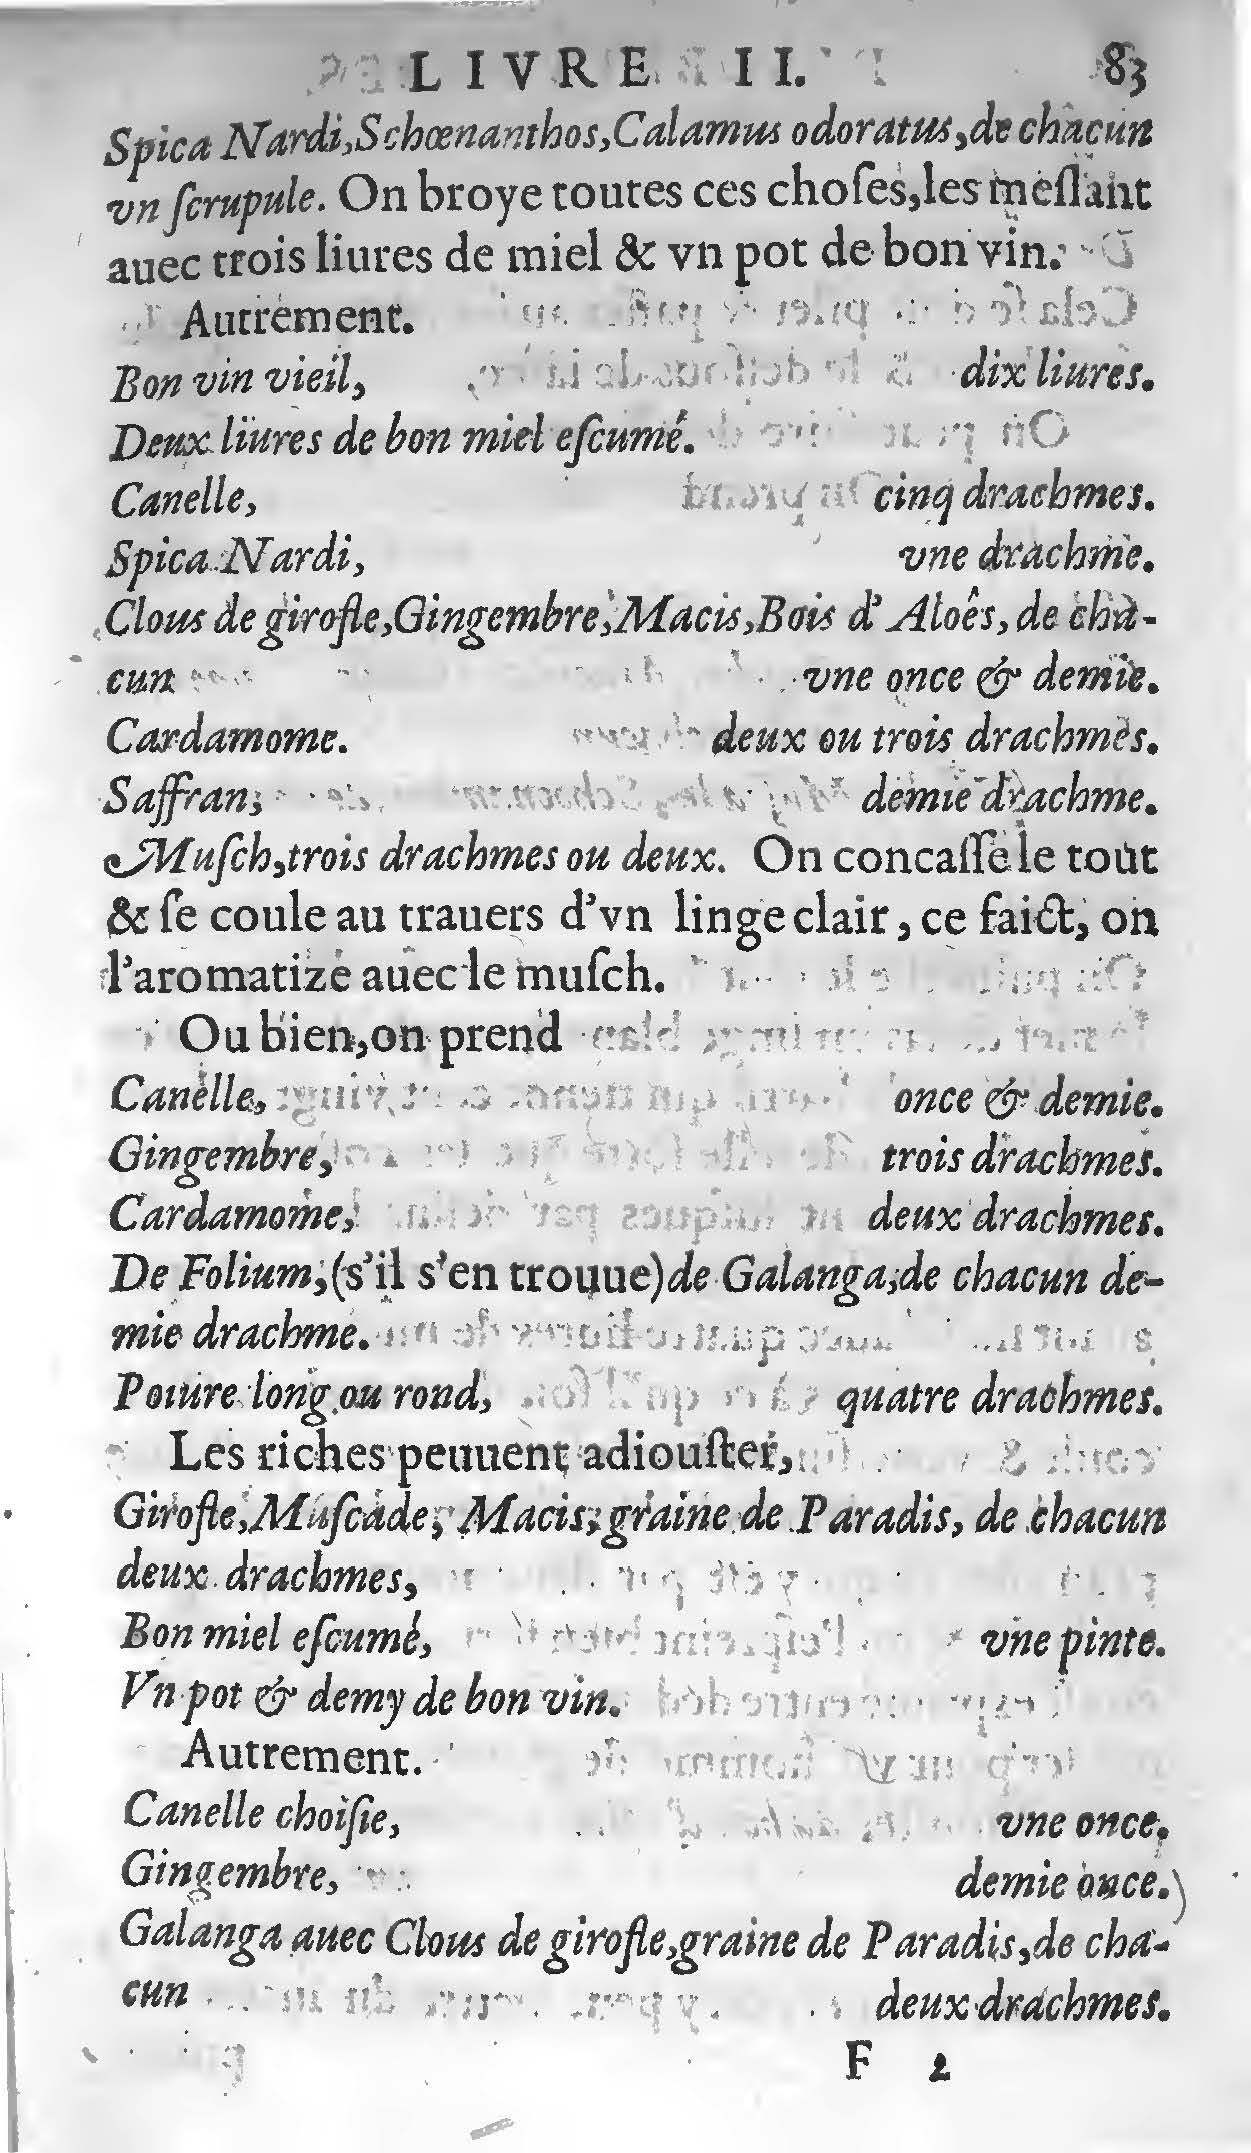 LIVRE II. 83
Spica Nardi, Schœnanthos, Calamus odoratus, de chacun
vn ſcrupule. On broye toutes ces choſes, les meſlant
auec trois liures de miel & vn pot de bon vin.
Autrement.
Bon vin vieil, dix liures.
Deux liures de bon miel eſcumé.
Canelle, cinq drachmes.
Spica Nardi, vne drachme.
Clous de girofle, Gingembre, Macis, Bois d'Aloês, de cha-
cun vne once & demie.
Cardamome. deux ou trois drachmes.
Saffran, demie drachme.
Muſch, trois drachmes ou deux. On concaſſe le tout
& ſe coule au trauers d'vn linge clair, ce faict, on
l'aromatize auec le muſch.
Ou bien, on prend
Canelle, once & demie.
Gingembre, trois drachmes.
Cardamome, deux drachmes.
De Folium, (s'il s'en trouue) de Galanga, de chacun de-
mie drachme.
Poiure long ou rond, quatre drachmes.
Les riches peuuent adiouſter,
Girofle, Muſcade, Macis, graine de Paradis, de chacun
deux drachmes,
Bon miel eſcumé, vne pinte.
Vn pot & demy de bon vin.
Autrement.
Canelle choiſie, vne once.
Gingembre, demie once.
Galanga auec Clous de girofle, graine de Paradis, de cha-
cun deux drachmes.
F 2